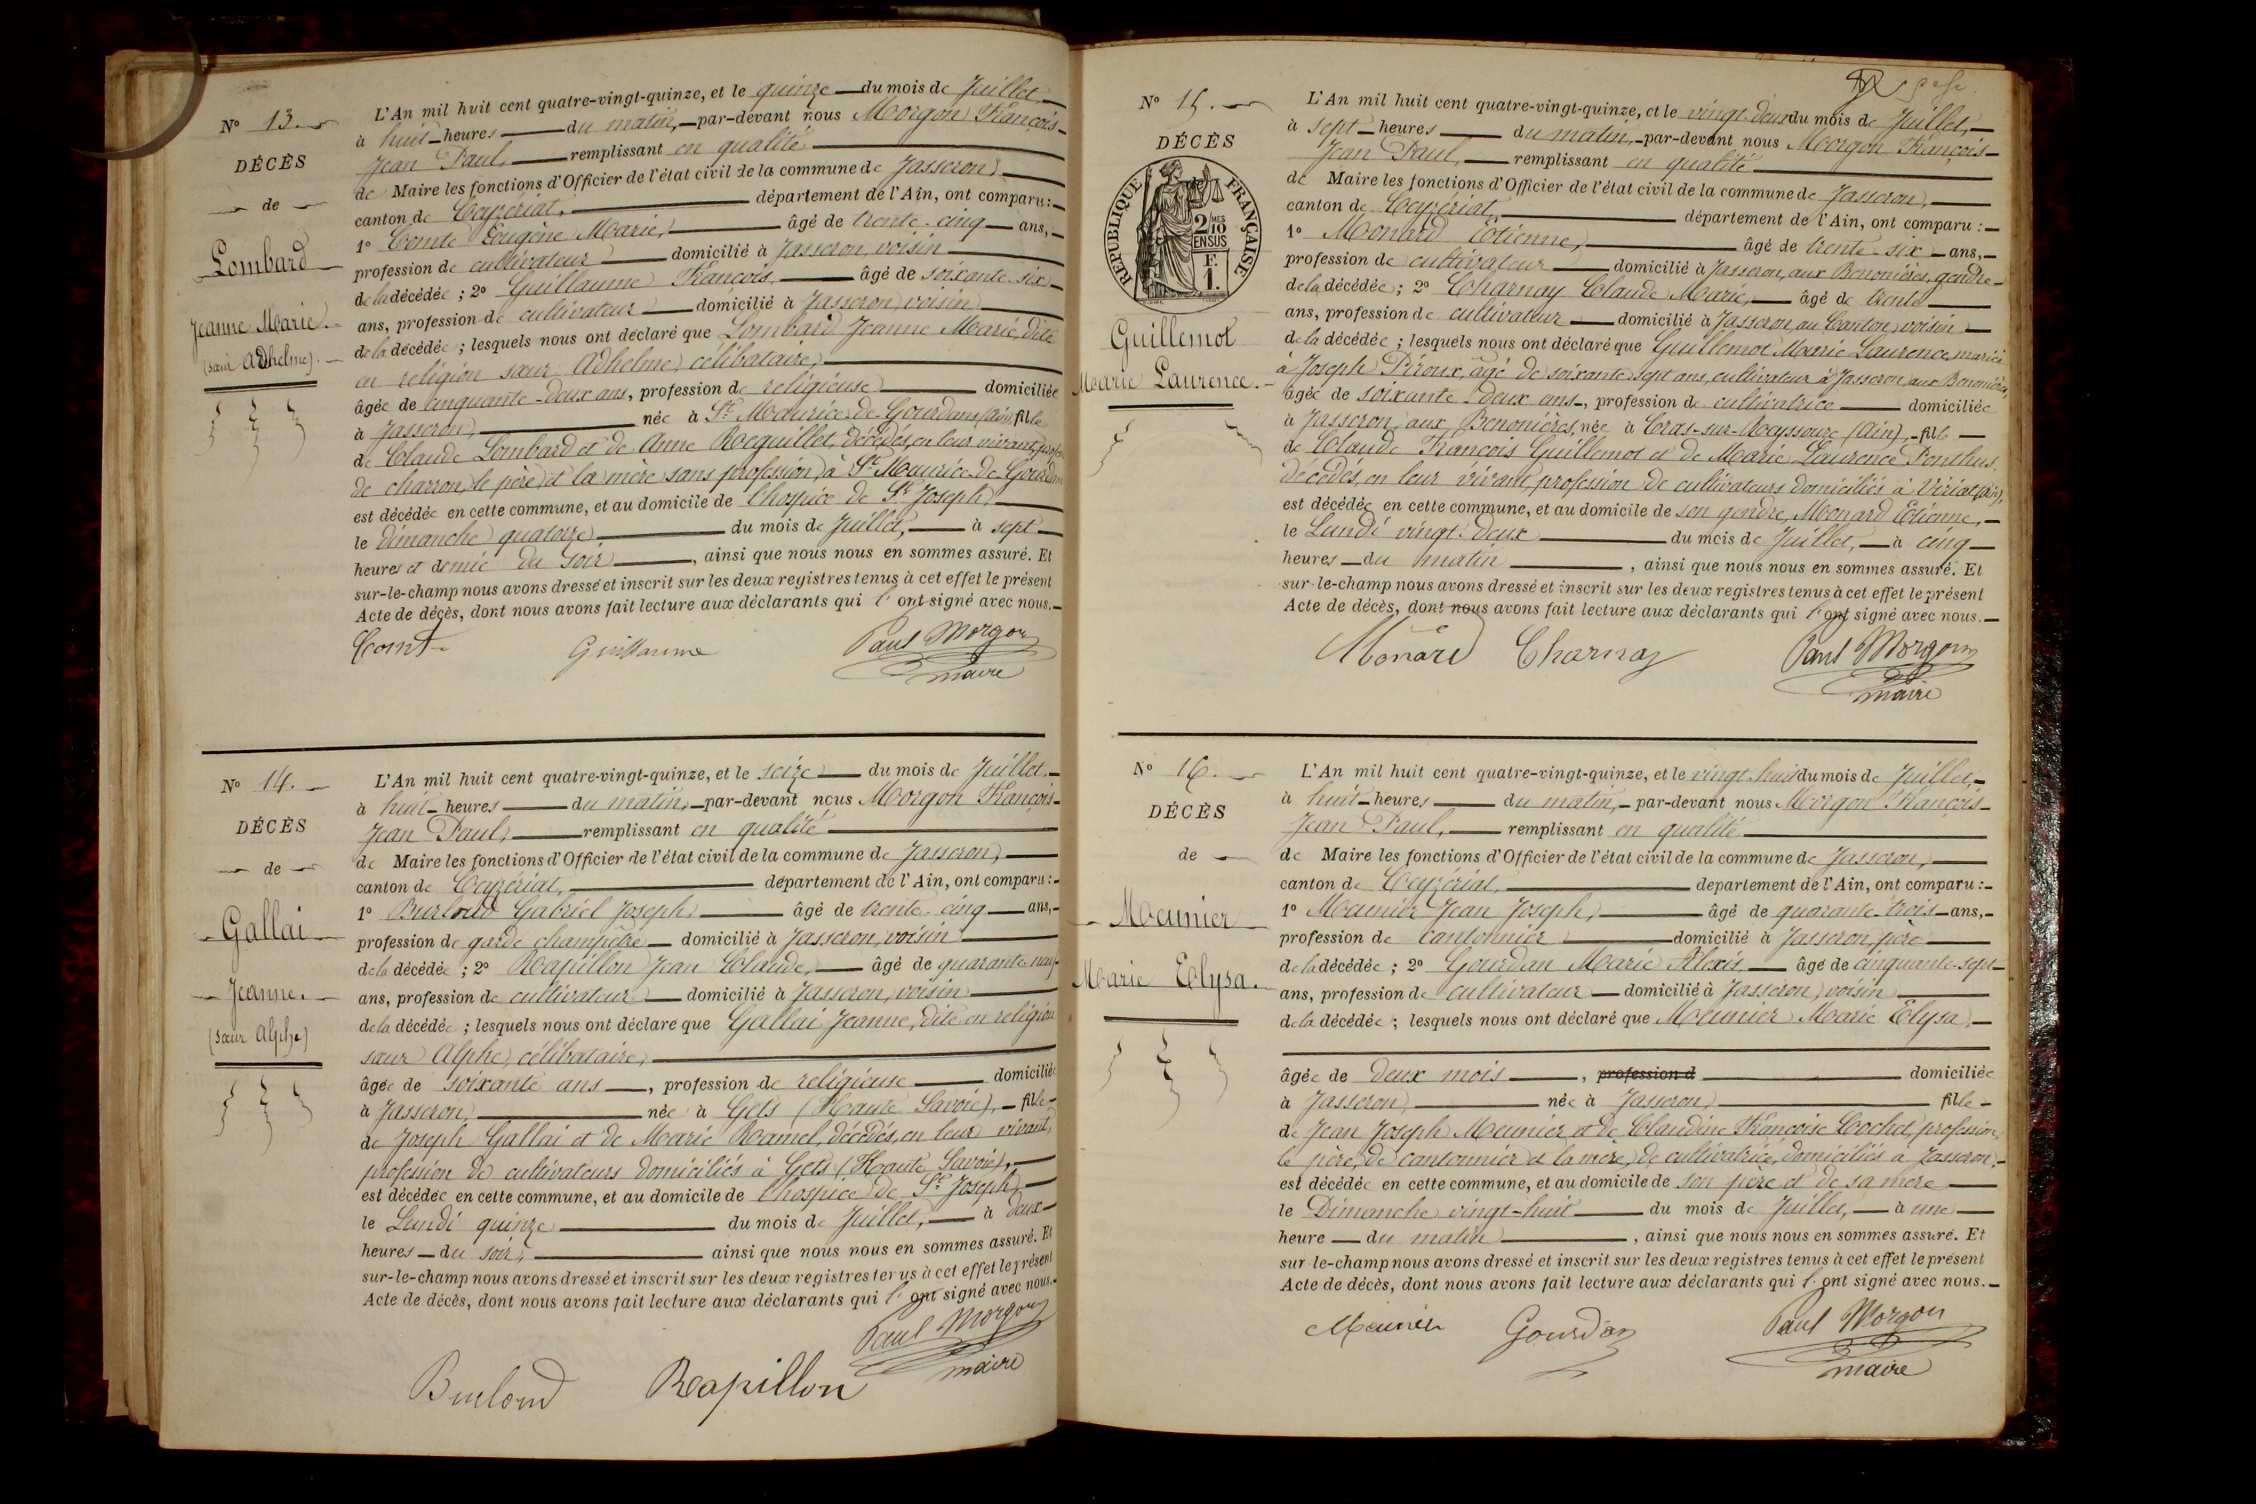 N° 13.
DÉCÈS
de
Lombard
Jeanne Marie.
(sœur Adhelme).
L'An mil huit cent quatre-vingt-quinze, et le quinze du mois de Juillet,
à huit heures du matin, par-devant nous Morgon François
Jean Paul, remplissant en qualité
de Maire les fonctions d'Officier de l'état civil de la commune de Jasseron,
canton de Ceyzériat, département de l'Ain, ont comparu :
1° Comte Eugène Marie, âgé de trente-cinq ans,
profession de cultivateur domicilié à Jasseron, voisin
de la décédée ; 2° Guillaume François âgé de soixante-six
ans, profession de cultivateur domicilié à Jasseron, voisin
de la décédée ; lesquels nous ont déclaré que Lombard Jeanne Marie, dite
en religion sœur Adhelme, célibataire,
âgée de cinquante-deux ans, profession de religieuse domiciliée
à Jasseron, née à St Maurice-de-Gourdans (Ain), fille
de Claude Lombard et de Anne Rocquillet, décédés, en leur vivant,
de charron, le père, et la mère sans profession, à St Maurice-de-Gourdans
est décédée en cette commune, et au domicile de l'hospice de St Joseph,
le dimanche quatorze du mois de Juillet, à sept
heures et demie du soir, ainsi que nous nous en sommes assuré. Et
sur-le-champ nous avons dressé et inscrit sur les deux registres tenus à cet effet le présent
Acte de décès, dont nous avons fait lecture aux déclarants qui l'ont signé avec nous.
Comte Guillaume Paul Morgon
maire
N° 14.
DÉCÈS
de
Gallai
Jeanne.
(sœur Alphe)
L'An mil huit cent quatre-vingt-quinze, et le seize du mois de Juillet,
à huit heures du matin, par-devant nous Morgon François
Jean Paul, remplissant en qualité
de Maire les fonctions d'Officier de l'état civil de la commune de Jasseron,
canton de Ceyzériat, département de l'Ain, ont comparu :
1° Burloud Gabriel Joseph, âgé de trente-cinq ans,
profession de garde champêtre domicilié à Jasseron, voisin
de la décédée ; 2° Rapillon Jean Claude, âgé de quarante-neuf
ans, profession de cultivateur domicilié à Jasseron, voisin
de la décédée ; lesquels nous ont déclaré que Gallai Jeanne, dite en religion
sœur Alphe, célibataire,
âgée de soixante ans, profession de religieuse domiciliée
à Jasseron, née à Gets (Haute Savoie), fille
de Joseph Gallai et de Marie Ramel, décédés, en leur vivant,
profession de cultivateurs domiciliés à Gets (Haute Savoie),
est décédée en cette commune, et au domicile de l'hospice de St Joseph,
le Lundi quinze du mois de Juillet, à deux
heures du soir, ainsi que nous nous en sommes assuré. Et
sur-le-champ nous avons dressé et inscrit sur les deux registres tenus à cet effet le présent
Acte de décès, dont nous avons fait lecture aux déclarants qui l'ont signé avec nous.
Paul Morgon
maire
Burloud Rapillon
N° 15.
DÉCÈS
RÉPUBLIQUE FRANÇAISE
2/10
MES
EN SUS
F.
1.
Guillemot
Marie Laurence.
L'An mil huit cent quatre-vingt-quinze, et le vingt-deux du mois de Juillet,
à sept heures du matin, par-devant nous Morgon François
Jean Paul, remplissant en qualité
de Maire les fonctions d'Officier de l'état civil de la commune de Jasseron,
canton de Ceyzériat, département de l'Ain, ont comparu :
1° Monard Etienne, âgé de trente-six ans,
profession de cultivateur domicilié à Jasseron, aux Benonières, gendre
de la décédée ; 2° Charnay Claude Marie, âgé de trente
ans, profession de cultivateur domicilié à Jasseron, au Canton, voisin
de la décédée ; lesquels nous ont déclaré que Guillemot Marie Laurence, mariée
à Joseph Péroux, âgé de soixante-sept ans, cultivateur à Jasseron, aux Benonières,
âgée de soixante-deux ans, profession de cultivatrice domiciliée
à Jasseron, aux Benonières, née à Cras-sur-Reyssouze (Ain), fille
de Claude François Guillemot et de Marie Laurence Ponthus,
décédés, en leur vivant, profession de cultivateurs domiciliés à Viriat (Ain),
est décédée en cette commune, et au domicile de son gendre, Monard Etienne,
le Lundi vingt-deux du mois de Juillet, à cinq
heures du matin, ainsi que nous nous en sommes assuré. Et
sur-le-champ nous avons dressé et inscrit sur les deux registres tenus à cet effet le présent
Acte de décès, dont nous avons fait lecture aux déclarants qui l'ont signé avec nous.
Monard Charnay Paul Morgon
maire
N° 16.
DÉCÈS
de
Meunier
Marie Elysa.
L'An mil huit cent quatre-vingt-quinze, et le vingt-huit du mois de Juillet,
à huit heures du matin, par-devant nous Morgon François
Jean Paul, remplissant en qualité
de Maire les fonctions d'Officier de l'état civil de la commune de Jasseron,
canton de Ceyzériat, département de l'Ain, ont comparu :
1° Meunier Jean Joseph, âgé de quarante-trois ans,
profession de cantonnier domicilié à Jasseron, père
de la décédée ; 2° Gourdan Marie Alexis, âgé de cinquante-sept
ans, profession de cultivateur domicilié à Jasseron, voisin
de la décédée ; lesquels nous ont déclaré que Meunier Marie Elysa,
âgée de deux mois, profession d domiciliée
à Jasseron, née à Jasseron, fille
de Jean Joseph Meunier et de Claudine Françoise Cochet, profession,
le père, de cantonnier et la mère, de cultivatrice, domiciliés à Jasseron,
est décédée en cette commune, et au domicile de son père et de sa mère
le Dimanche vingt-huit du mois de Juillet, à une
heure du matin, ainsi que nous nous en sommes assuré. Et
sur-le-champ nous avons dressé et inscrit sur les deux registres tenus à cet effet le présent
Acte de décès, dont nous avons fait lecture aux déclarants qui l'ont signé avec nous.
Meunier Gourdan Paul Morgon
maire